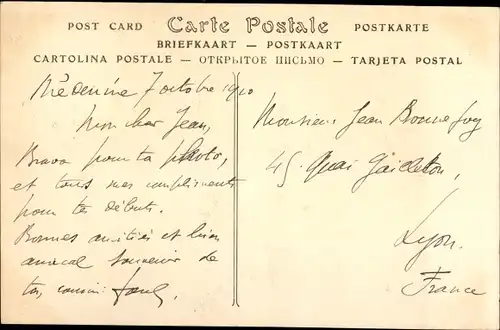 POST CARD Carte Postale POSTKARTE
BRIEFKAART — POSTKAART
CARTOLINA POSTALE — ОТКРЫТОЕ ПИСЬМО — TARJETA POSTAL
Médenine 7 octobre 1910
Mon cher Jean,
Bravo pour ta photo,
et tous mes compliments
pour tes débuts.
Bonnes amitiés et bien
amical souvenir de
ton cousin
Monsieur Jean Bonnefoy
45 Quai Gailleton,
Lyon.
France